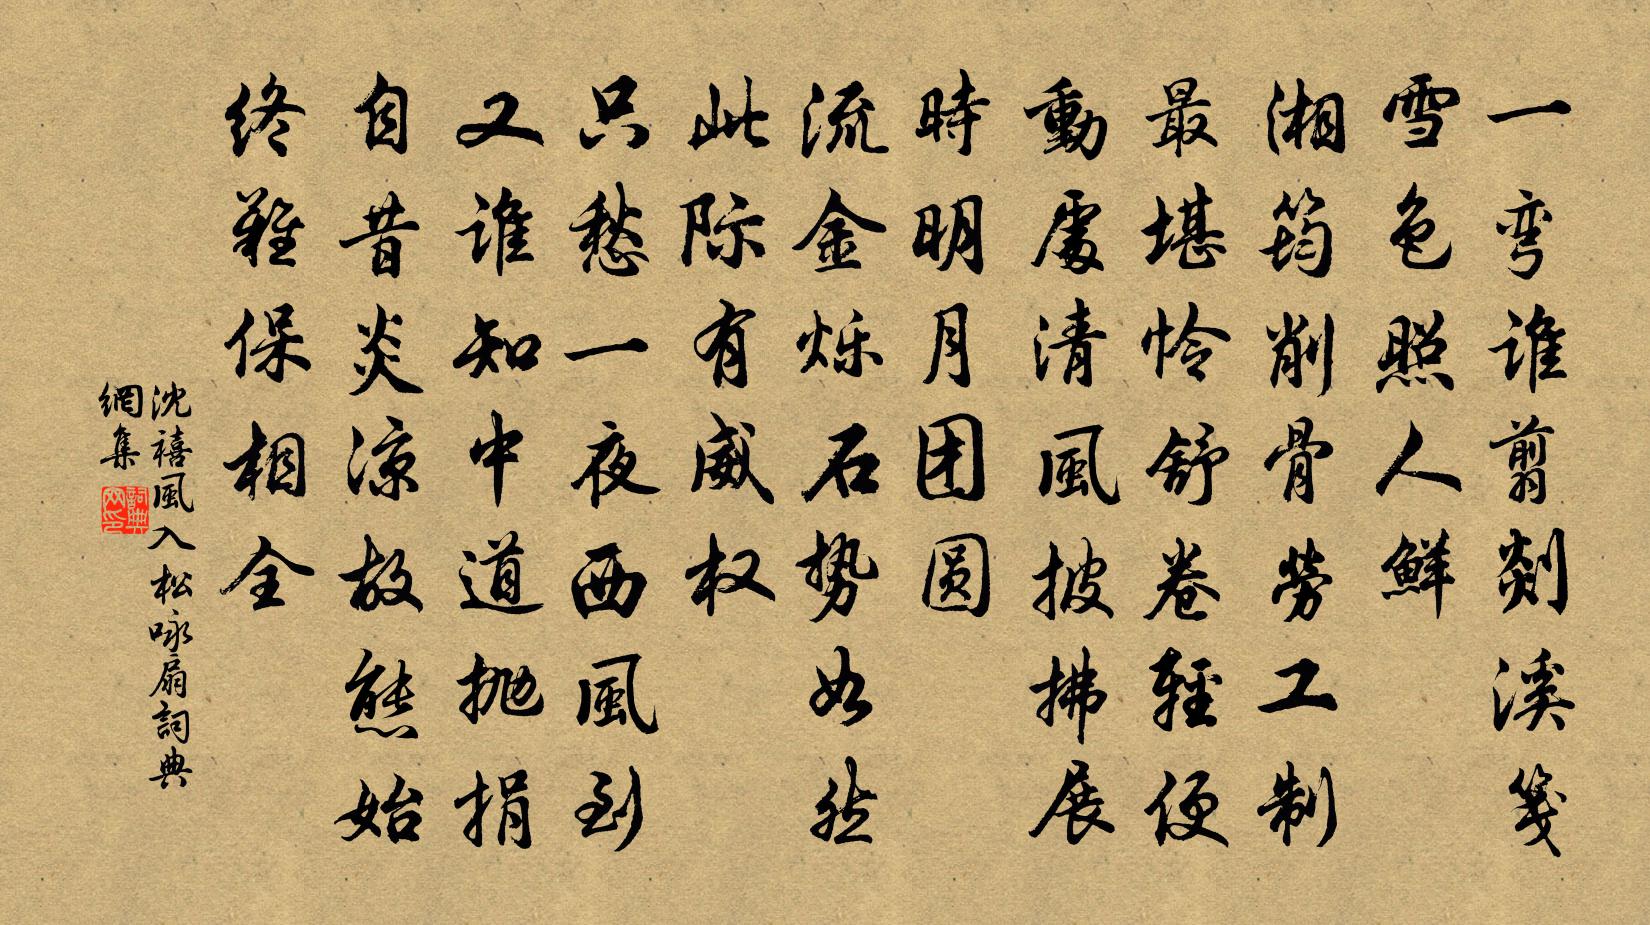 一弯谁剪剡溪笺
雪色照人鲜
湘筠削骨劳工制
最堪怜舒卷轻便
動處清風披拂展
時明月团圆
流金烁石势如然
此际有威权
只愁一夜西風到
又谁知中道抛捐
自昔炎凉故態始
终难保相全
沈禧風入松咏扇詞典
網集
詞典网印